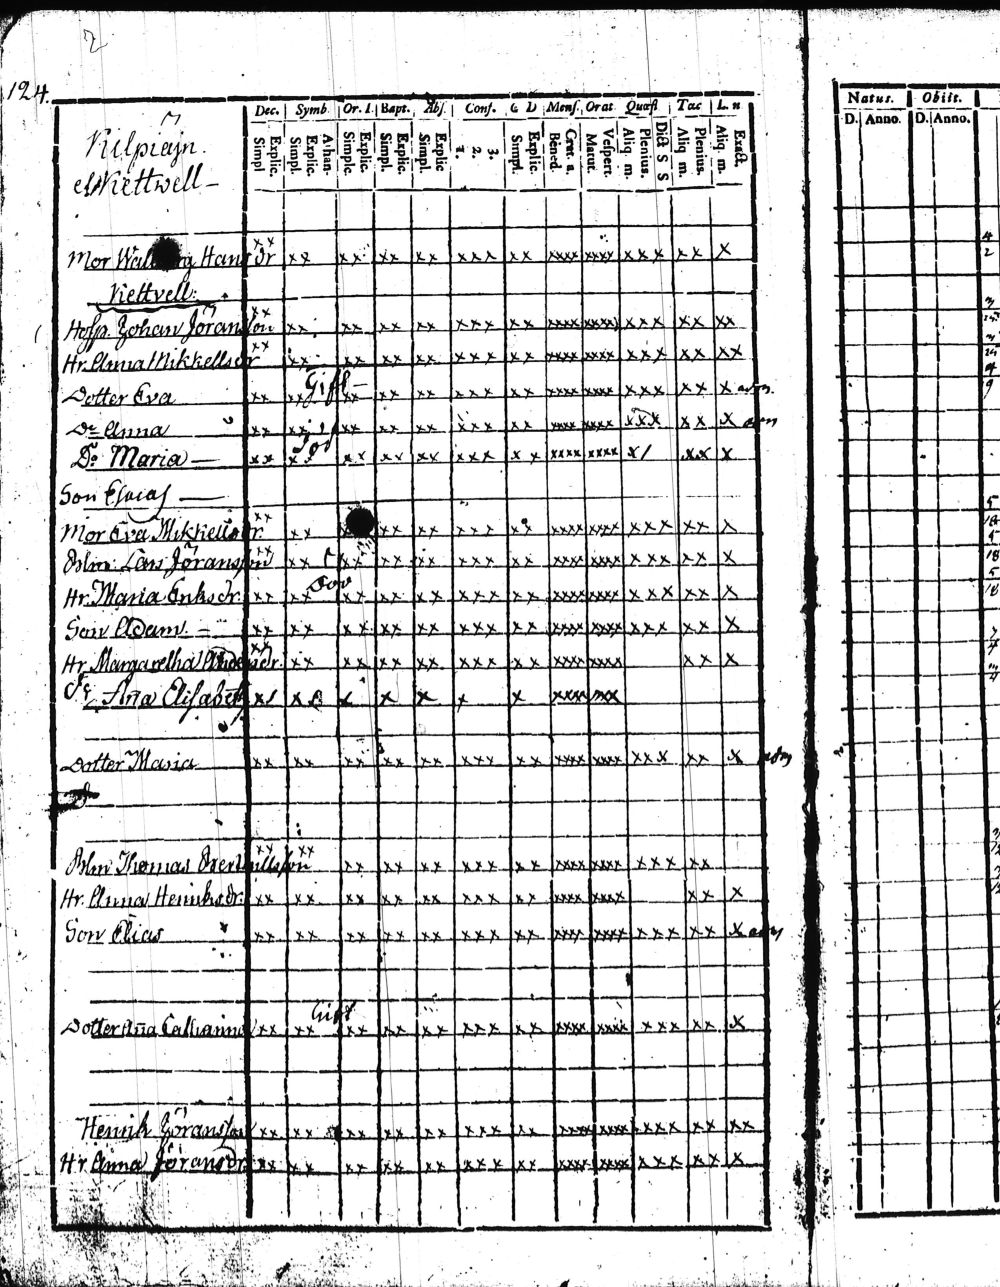 2
124.
Dec. Symb. Or. I. Bapt. Abs. Conf. C D Mens. Orat Quæst Tac L. n
Simpl. Explic. Simpl. Explic. Athan. Simplc. Explic. Simpl. Explic. Simpl. Explic 1. 2. 3. Simpl. Explic. Bened. Grat. a. Matut. Vespert. Aliq. m. Plenius. Dict S S Aliq m. Plenius. Aliq. m. Exact.
Natus. Obiit.
D. Anno. D. Anno.
Kilpiäjn.
el Kettwell
Mor Walborg Hans dr xx xx xx xx xx xxx xx xxxx xxxx xxx xx x
Kettvell
Hosp. Johan Jöransson xx xx xx xx xx xxx xx xxxx xxxx xxx xx xx
Hr. Anna Mikkellsdr xx xx xx xx xx xxx xx xxxx xxxx xxx xx xx
Gift
Dotter Eva xx xx xx xx xx xxx xx xxxx xxxx xxx xx x adm.
Do Anna xx xx xx xx xx xxx xx xxxx xxxx xxx xx x adm
Död
Do Maria xx xx xx xx xx xxx xx xxxx xxxx x/ xx x
Son Esaias
Mor Eva Mikkellsdr. xx xx xx xx xxx x xxxx xxxx xxx xx x
Lars Jöransson xx xx xx xx xx xxx xx xxxx xxxx xxx xx x
Hr. Maria Eriksdr. xx xx xx xx xx xxx xx xxxx xxxx xxx xx x
Son Adam xx xx xx xx xx xxx xx xxxx xxxx xxx xx x
Hr Margaretha Andersdr. xx xx xx xx xx xxx xx xxxx xxxx xx x
Ana Elisabeth
Dotter Maria xx xx xx xx xx xxx xx xxxx xxxx xxx xx x adm
Thomas xx xx xx xx xx xxx xx xxxx xxxx xxx xx
Hr. Anna Henriksdr. xx xx xx xx xx xxx xx xxxx xxxx xx x
Son Elias xx xx xx xx xx xxx xx xxxx xxxx xxx xx x adm
Gift
Dotter Ana Catharina xx xx xx xx xx xxx xx xxxx xxxx xxx xx x
Henrik Jöransson xx xx xx xx xx xxx xx xxxx xxxx xxxx xx xx
Hr. Anna Jöransdr. xx xx xx xx xx xxx xx xxxx xxxx xxx xx x